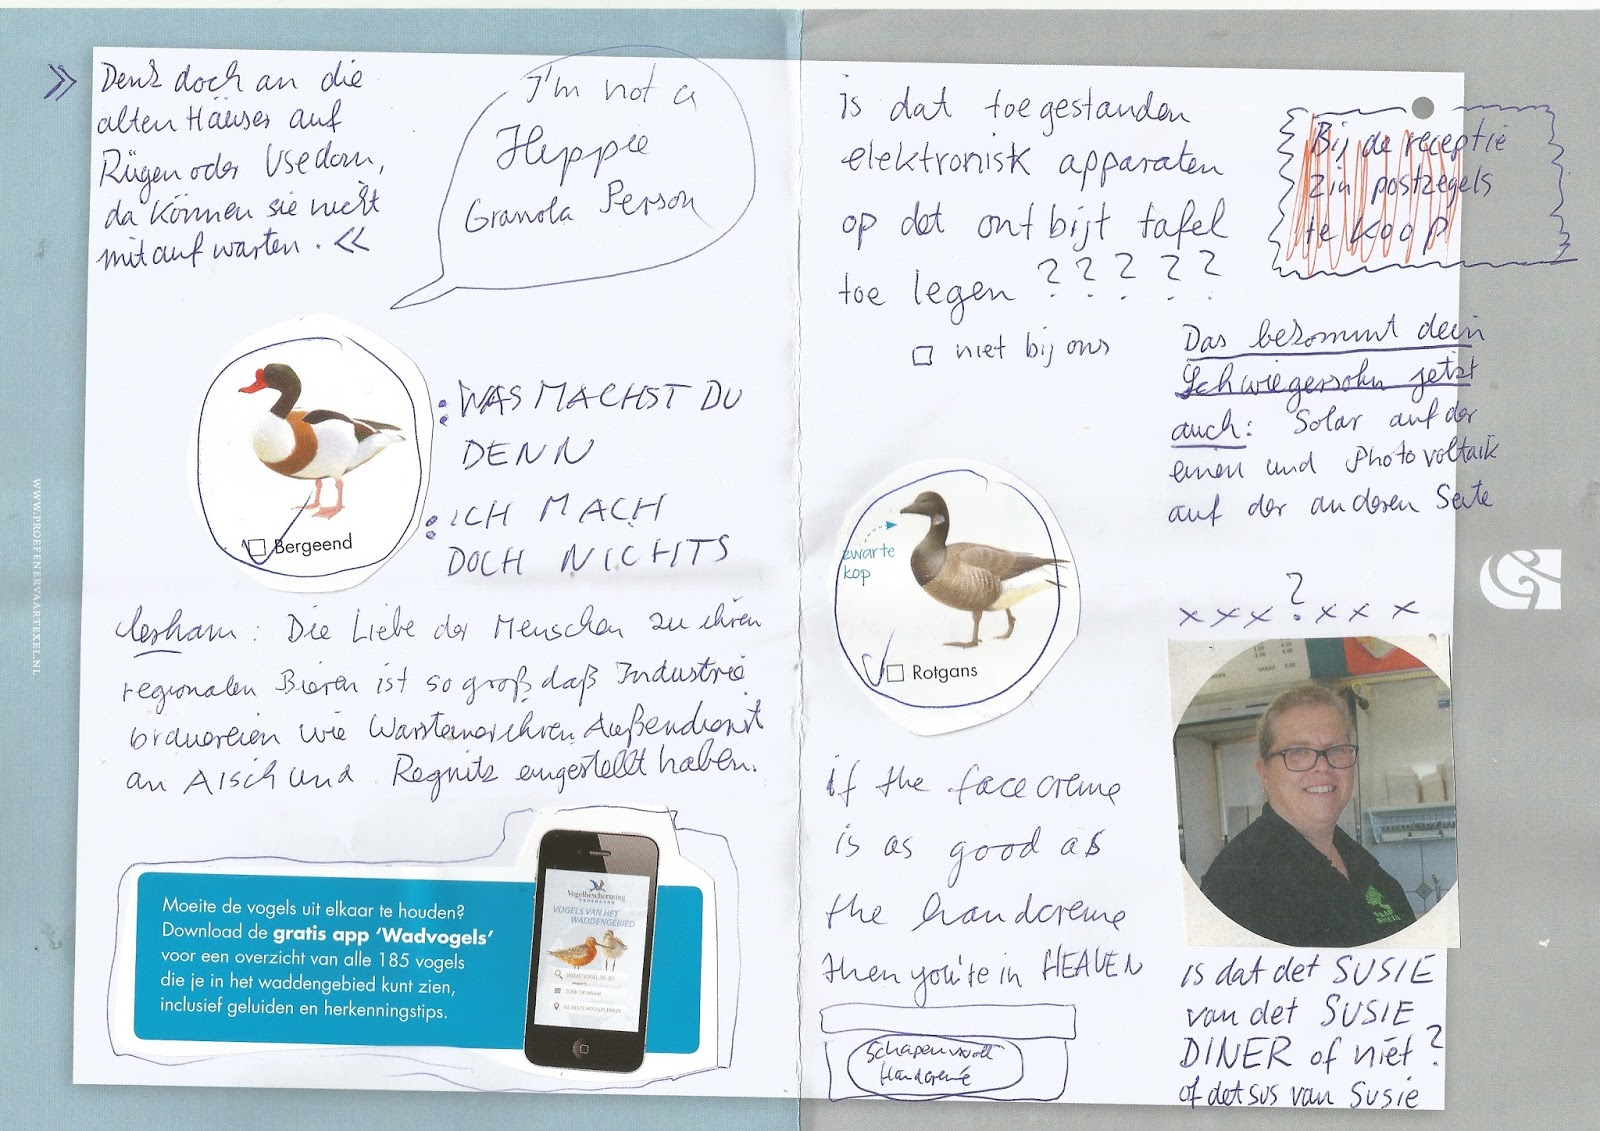 Denk doch an die
alten Häuser auf
Rügen oder Usedom,
da können sie nicht
mit aufwarten. «
»
I'm not a
Hippie
Granola Person
Bergeend
: WAS MACHST DU
DENN
: ICH MACH
DOCH NICHTS
Die Liebe der Menschen zu ihren
regionalen Bieren ist so groß daß Industrie
brauereien wie Warsteiner ihren Außendienst
an Aisch und Regnitz eingestellt haben.
Moeite de vogels uit elkaar te houden?
Download de gratis app 'Wadvogels'
voor een overzicht van alle 185 vogels
die je in het waddengebied kunt zien,
inclusief geluiden en herkenningstips.
Vogelbescherming
NEDERLAND
VOGELS VAN HET
WADDENGEBIED
WWW.PROEFENERVAARTEXEL.NL
is dat toegestanden
elektronisk apparaten
op det ontbijt tafel
toe legen ? ? ? ? ?
niet bij ons
Bij de receptie
zin postzegels
te koop
Das bekommt dein
Schwiegersohn jetzt
auch: Solar auf der
einen und Photovoltaik
auf der anderen Seite
zwarte
kop
Rotgans
x x x ? x x x
if the facecreme
is as good as
the handcreme
then you're in HEAVEN
Schapenvoett
Handcreme
is dat det SUSIE
van det SUSIE
DINER of niet?
of det sus van Susie